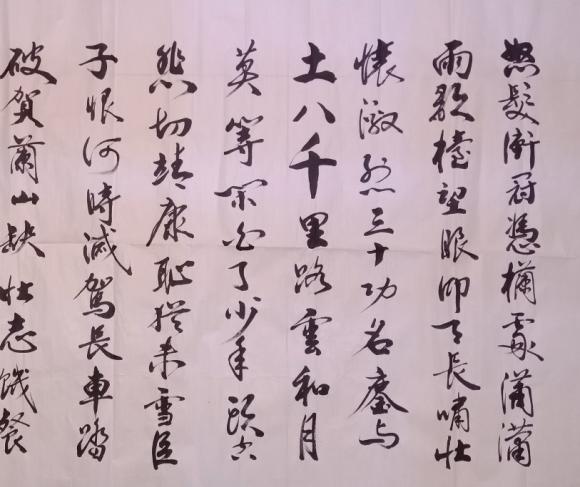 怒髮衝冠憑欄處瀟瀟
雨歇擡望眼仰天長嘯壯
懷激烈三十功名塵与
土八千里路雲和月
莫等閑白了少年頭空
悲切靖康恥猶未雪臣
子恨何時滅駕長車踏
破賀蘭山缺壯志饑餐